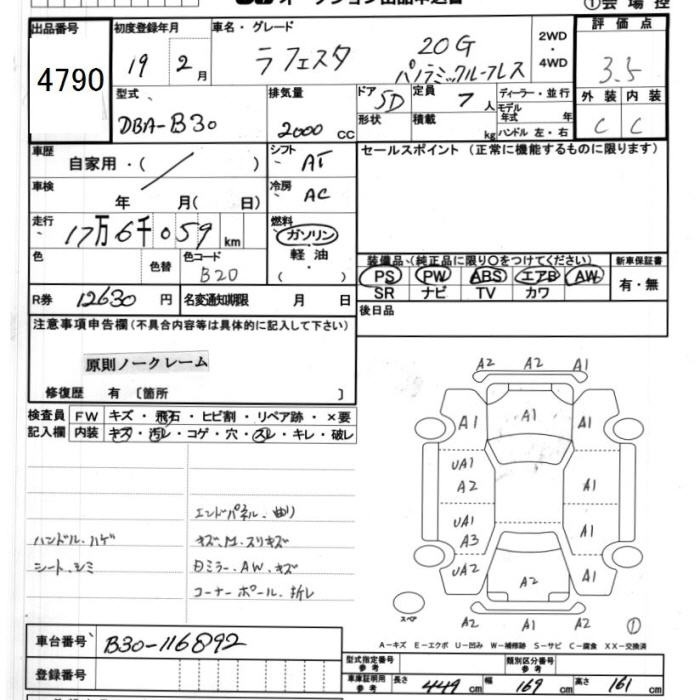 オークション出品申込書
①会場控
出品番号 初度登録年月 車名・グレード 2WD・4WD 評価点
4790 19 2月 ラフェスタ 20G パノラミックルーフレス 3.5
型式 排気量 ドア 定員 ディーラー・並行 外装 内装
DBA-B30 2000 CC 5D 7人 モデル年式 年 C C
形状 積載 kg ハンドル 左・右
車歴 自家用・( ) シフト AT セールスポイント (正常に機能するものに限ります)
車検 年 月( 日) 冷房 AC
走行 17万6千059 km 燃料 ガソリン・軽油・( )
色 色替 色コード B20
装備品 (純正品に限り○をつけてください) 新車保証書
PS PW ABS エアB AW 有・無
SR ナビ TV カワ
R券 12630 円 名変通知期限 月 日 後日品
注意事項申告欄 (不具合内容等は具体的に記入して下さい)
原則ノークレーム
修復歴 有 〔箇所 〕
検査員記入欄 FW キズ・飛石・ヒビ割・リペア跡・×要
内装 キズ・汚レ・コゲ・穴・スレ・キレ・破レ
エンドパネル、曲り
ハンドル、ハゲ キズ、M、スリキズ
シート、シミ 白ミラー、AW、キズ
コーナーポール、折レ
A2 A2 A1
A1 A1 A1
UA1
A2 A1
UA1
A3 A1
UA2 A2 A1
A2 A2 A1
スペア ①
A-キズ E-エクボ U-凹み W-補修跡 S-サビ C-腐食 XX-交換済
車台番号 B30-116892
登録番号
型式指定番号 参考 類別区分番号 参考
車庫証明用 参考 長さ 449 cm 幅 169 cm 高さ 161 cm